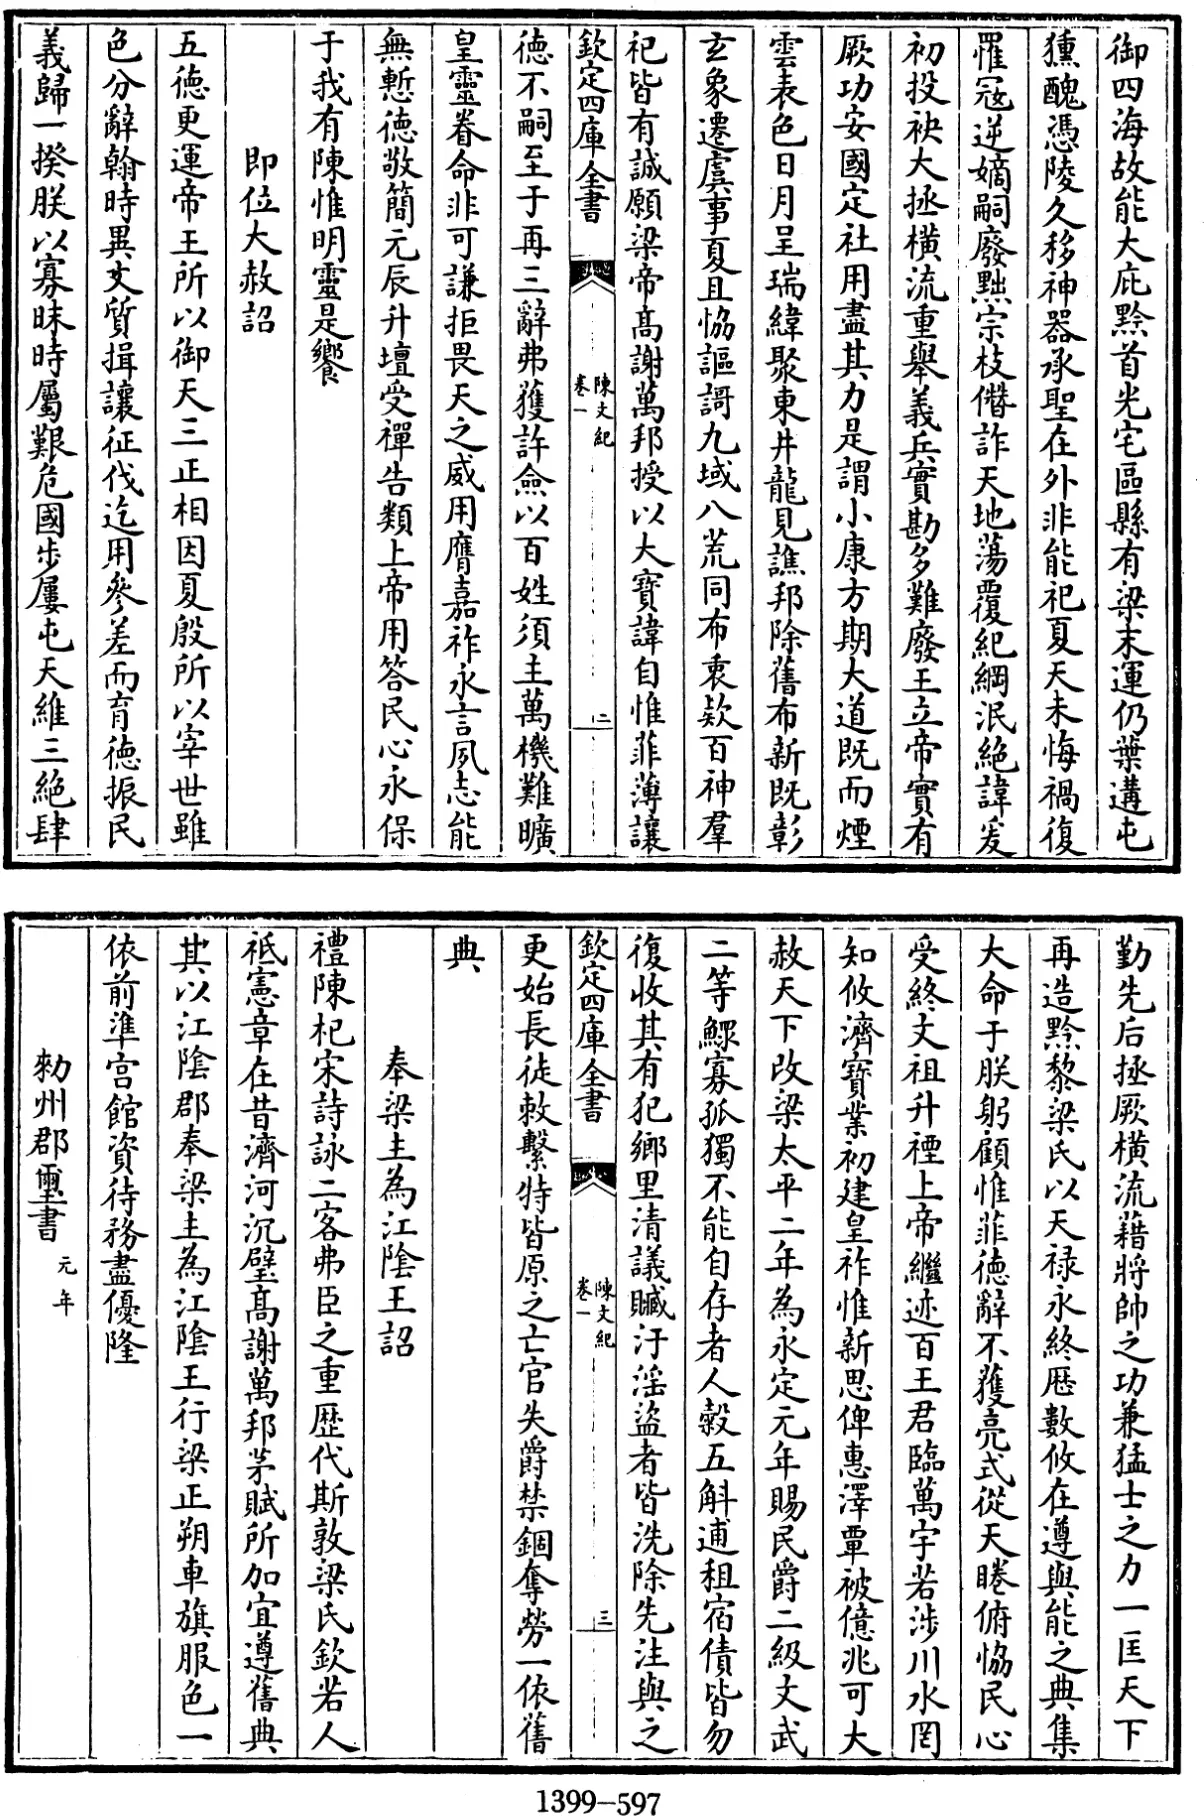 御四海故能大庇黔首光宅區縣有梁末運仍葉遘屯
獯醜憑陵久移神器承聖在外非能祀夏天未悔禍復
罹寇逆嫡嗣廢黜宗枝僭詐天地蕩覆紀綱泯絶諱爰
初投袂大拯橫流重舉義兵實勘多難廢王立帝實有
厥功安國定社用盡其力是謂小康方期大道既而煙
雲表色日月呈瑞緯聚東井龍見譙邦除舊布新既彰
玄象遷虞事夏且協謳謌九域八荒同布衷欵百神羣
祀皆有誠願梁帝髙謝萬邦授以大寳諱自惟菲薄讓
欽定四庫全書
陳文紀
卷一
二
徳不嗣至于再三辭弗獲許僉以百姓須主萬機難曠
皇靈眷命非可謙拒畏天之威用膺嘉祚永言夙志能
無慙徳敬簡元辰升壇受禪告類上帝用答民心永保
于我有陳惟明靈是饗
即位大赦詔
五徳更運帝王所以御天三正相因夏殷所以宰世雖
色分辭翰時異文質揖讓征伐迄用參差而育徳振民
義歸一揆朕以寡昧時屬艱危國步屢屯天維三絶肆
勤先后拯厥橫流藉將帥之功兼猛士之力一匡天下
再造黔黎梁氏以天禄永終歴數攸在遵與能之典集
大命于朕躬顧惟菲徳辭不獲亮式從天睠俯協民心
受終文祖升禋上帝繼迹百王君臨萬宇若涉川水罔
知攸濟寳業初建皇祚惟新思俾惠澤覃被億兆可大
赦天下改梁太平二年為永定元年賜民爵二級文武
二等鰥寡孤獨不能自存者人榖五斛逋租宿債皆勿
復收其有犯鄉里清議贓汙淫盜者皆洗除先注與之
欽定四庫全書
陳文紀
卷一
三
更始長徒敕繫特皆原之亡官失爵禁錮奪勞一依舊
典
奉梁主為江陰王詔
禮陳杞宋詩詠二客弗臣之重歴代斯敦梁氏欽若人
祗憲章在昔濟河沉璧髙謝萬邦茅賦所加宜遵舊典
其以江陰郡奉梁主為江陰王行梁正朔車旗服色一
依前準宫館資待務盡優隆
勑州郡璽書元年
1399-597